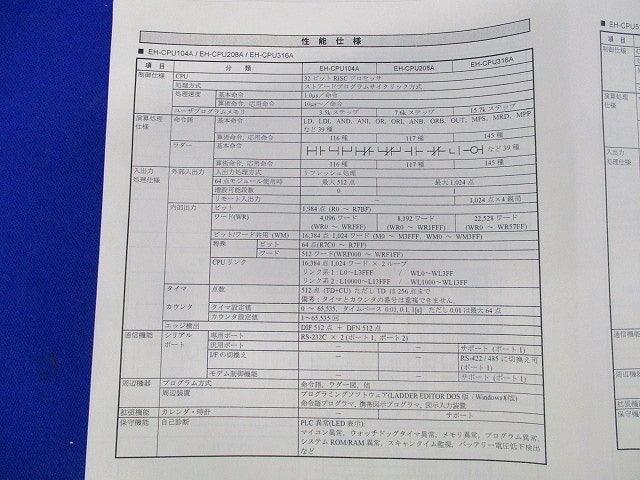 性能仕様
■ EH-CPU104A / EH-CPU208A / EH-CPU316A
項目 分類 EH-CPU104A EH-CPU208A EH-CPU316A
制御仕様 CPU 32 ビット RISC プロセッサ
処理方式 ストアードプログラムサイクリック方式
処理速度 基本命令 1.0μs／命令
算術命令, 応用命令 10μs～／命令
ユーザプログラムメモリ 3.5k ステップ 7.6k ステップ 15.7k ステップ
演算処理仕様 命令語 基本命令 LD, LDI, AND, ANI, OR, ORI, ANB, ORB, OUT, MPS, MRD, MPP
など 39 種
算術命令, 応用命令 116 種 117 種 145 種
ラダー 基本命令 など 39 種
算術命令, 応用命令 116 種 117 種 145 種
入出力処理仕様 外部入出力 入出力処理方式 リフレッシュ処理
64 点モジュール使用時 最大 512 点 最大 1,024 点
増設可能段数 0 1
リモート入出力 － － 1,024 点×4 親局
内部出力 ビット 1,984 点 (R0 ～ R7BF)
ワード(WR) 4,096 ワード 8,192 ワード 22,528 ワード
(WR0 ～ WRFFF) (WR0 ～ WR1FFF) (WR0 ～ WR57FF)
ビット/ワード共用 (WM) 16,384 点 1,024 ワード (M0 ～ M3FFF, WM0 ～ WM3FF)
特殊 ビット 64 点(R7C0 ～ R7FF)
ワード 512 ワード(WRF000 ～ WRF1FF)
CPU リンク 16,384 点 1,024 ワード × 2 ループ
リンク系 1 : L0～L3FFF / WL0～WL3FF
リンク系 2 : L10000～L13FFF WL1000～WL13FF
タイマ 点数 512 点 (TD+CU) ただし TD は 256 点まで
カウンタ 備考 : タイマとカウンタの番号は重複できません。
タイマ設定値 0 ～ 65,535, タイムベース 0.01, 0.1, 1[s] ただし 0.01 は最大 64 点
カウンタ設定値 1～65,535 回
エッジ検出 DIF 512 点 ＋ DFN 512 点
通信機能 シリアルポート 専用ポート RS-232C × 2 (ポート 1, ポート 2)
汎用ポート － － サポート (ポート 1)
I/F の切換え － － RS-422 / 485 に切換え可
(ポート 1)
モデム制御機能 － － サポート (ポート 1)
周辺機器 プログラム方式 命令語, ラダー図, 他
周辺装置 プログラミングソフトウェア(LADDER EDITOR DOS 版 / Windows®版)
命令語プログラマ, 携帯図示プログラマ, 図示入力装置
拡張機能 カレンダ・時計 － サポート
保守機能 自己診断 PLC 異常(LED 表示)
マイコン異常, ウォッチドッグタイマ異常, メモリ異常, プログラム異常,
システム ROM/RAM 異常, スキャンタイム監視, バッテリー電圧低下検出
など
■ EH-CPU5
項目
制御仕様
演算処理
仕様
入出力
処理仕様